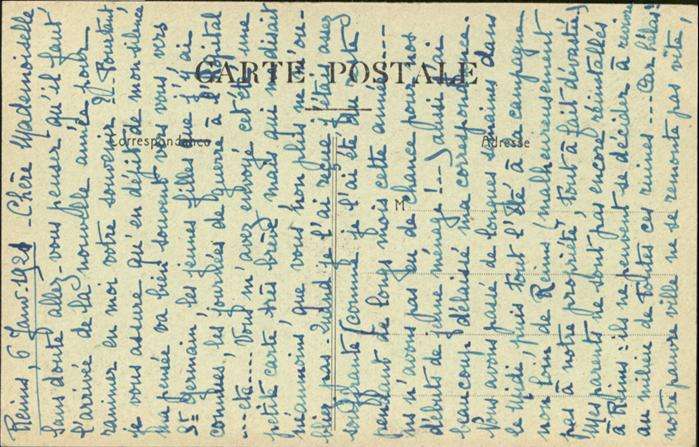 CARTE POSTALE
Correspondance
Adresse
M
Reims, 6 Janv. 1921 - Chère Mademoiselle
Sans doute allez-vous penser qu'il faut
l'arrivée de la nouvelle année pour
ranimer en moi votre souvenir ?.. Pourtant
je vous assure qu'en dépit de mon silence
ma pensée va bien souvent vers vous vers
St Germain, les jeunes filles que j'ai
connues, les journées de guerre à l'hôpital
... etc.... Vous m'avez envoyé cet été une
petite carte très brève mais qui me disait
néanmoins, que vous non plus ne m'ou-
bliez pas. Quand je l'ai reçue j'étais assez
souffrante (comme je l'ai été du reste
pendant de longs mois cette année....
nous n'avons pas eu de chance pour nos
débuts de jeune ménage !... J'ai ainsi
beaucoup délaissé ma correspondance.
Nous avons passé de longues semaines dans
le midi, puis tout l'été à la campagne
non loin de Reims (malheureusement
pas à notre propriété tout à fait dévastée)
Mes parents ne sont pas encore réinstallés
à Reims : ils ne peuvent se décider à revenir
au milieu de toutes ces ruines... Car hélas !
notre pauvre ville ne se remonte pas vite !